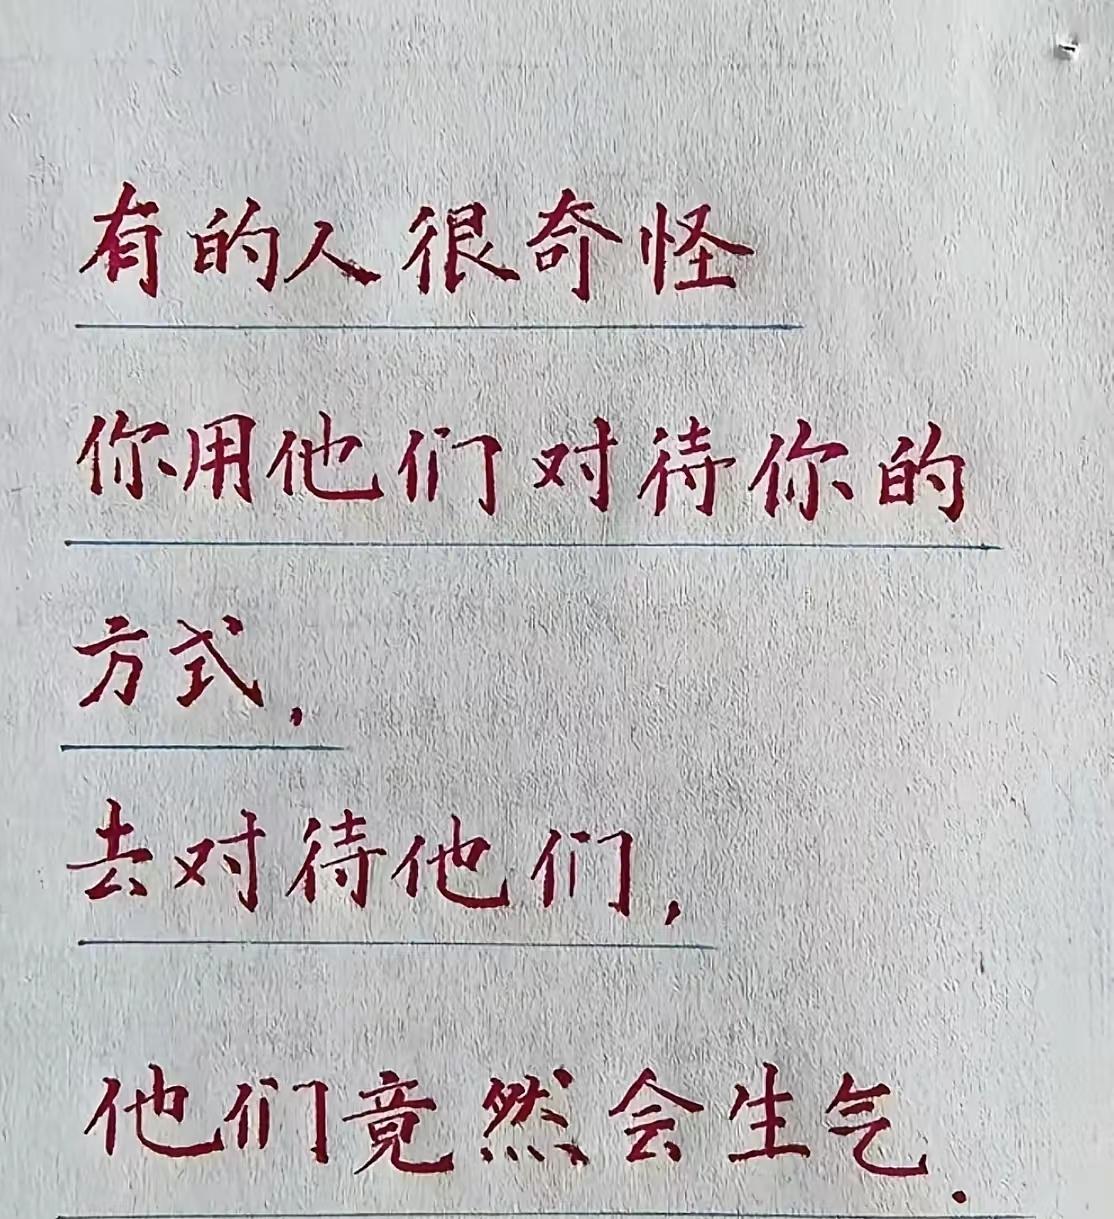 有的人很奇怪
你用他们对待你的
方式，
去对待他们，
他们竟然会生气.